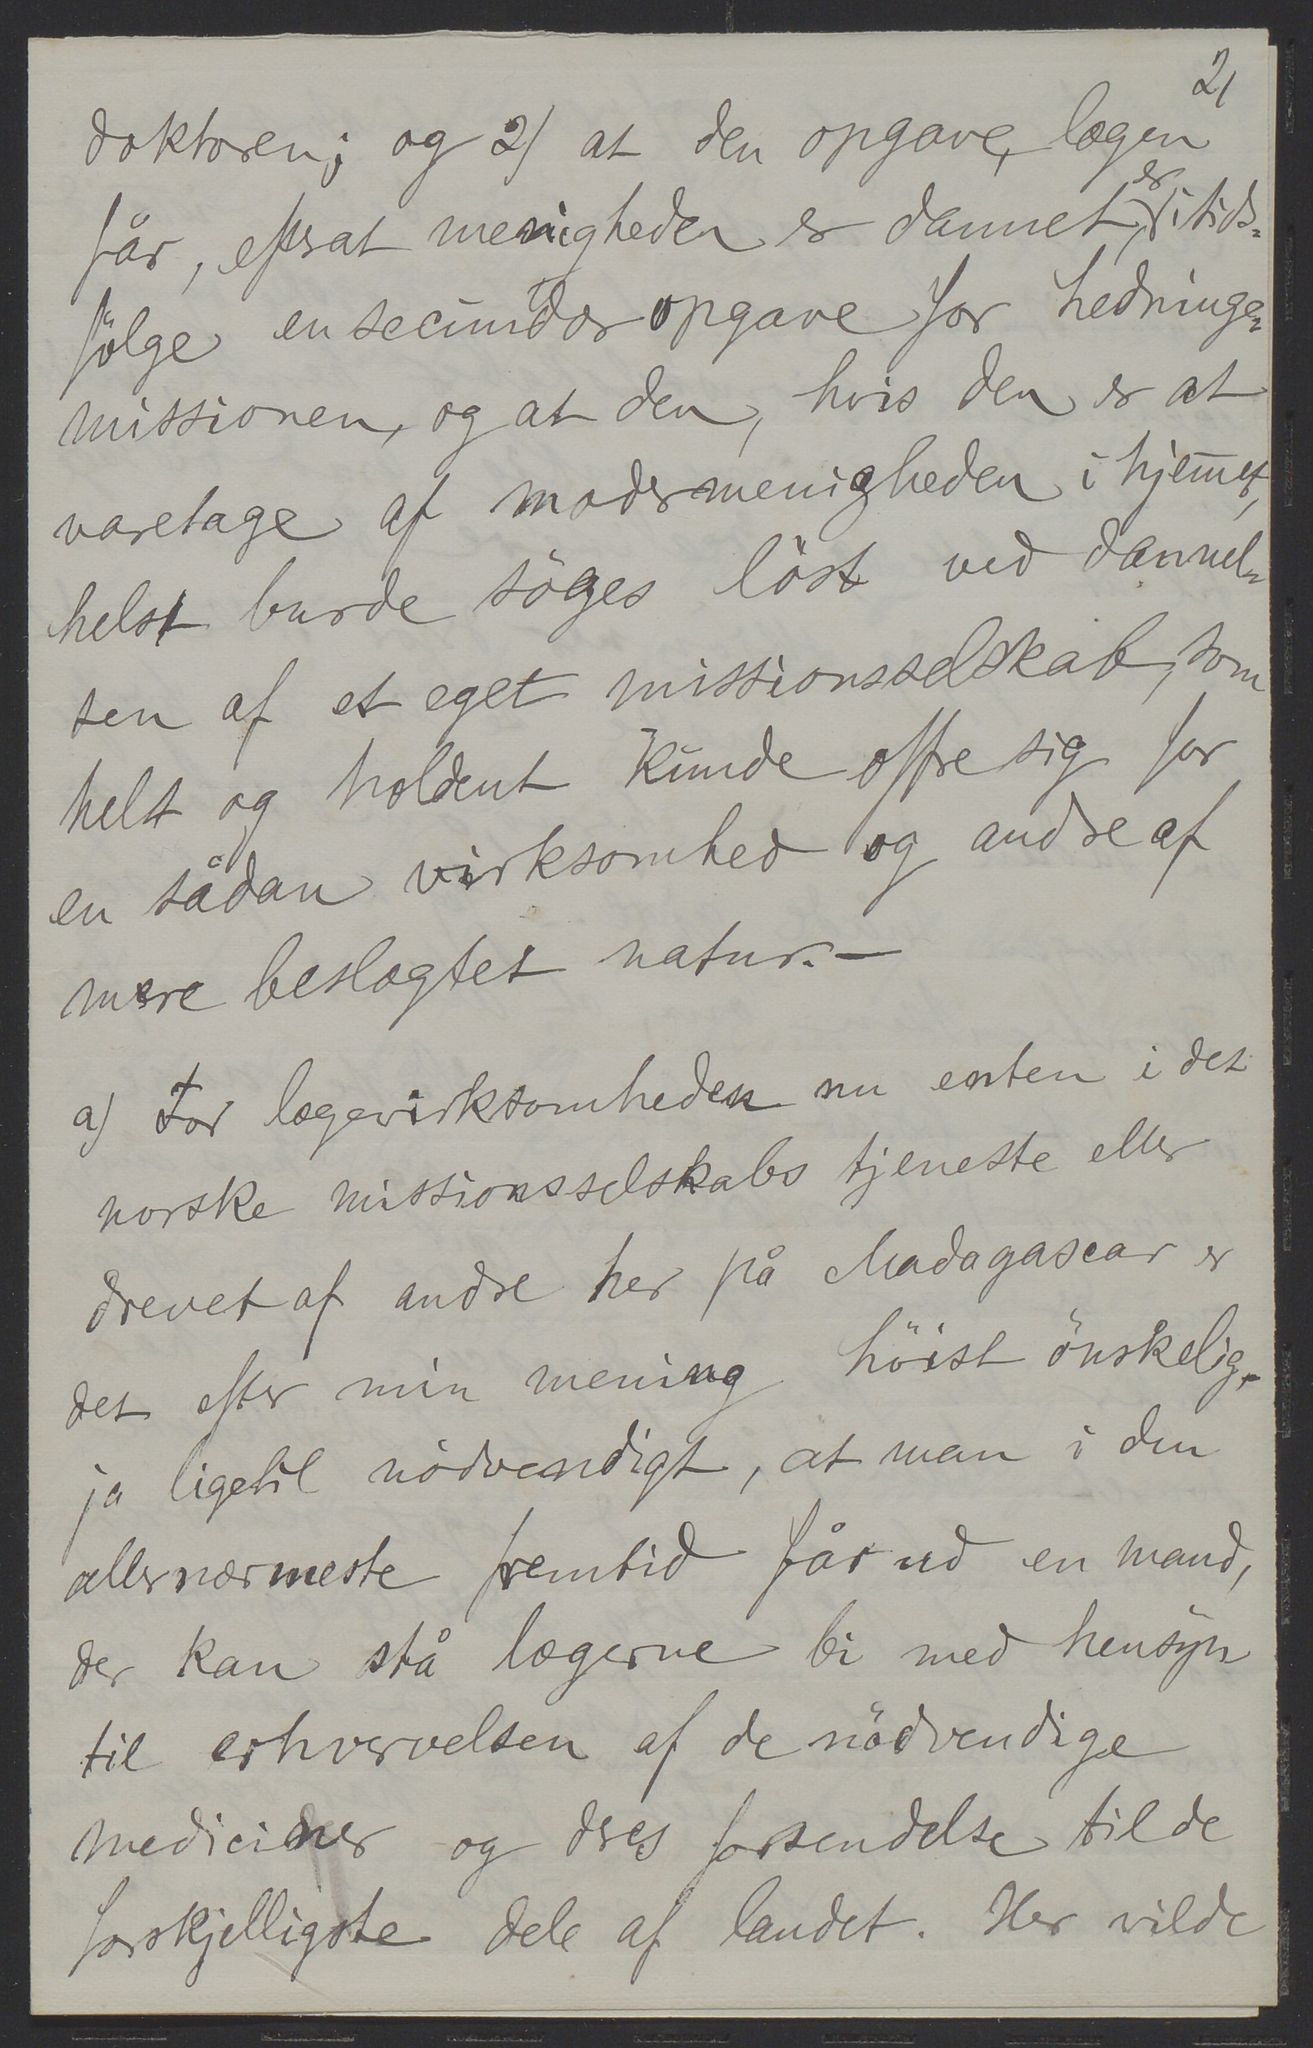 21
doktoren; og 2) at den opgave, lægen
får, efterat menigheden er dannet, er i tids-
følge en secundær opgave for hedninge-
missionen, og at den, hvis den er at
varetage af modermenigheden i hjemet,
helst burde söges löst ved dannel-
sen af et eget missionsselskab, som
helt og holdent kunde offre sig for
en sådan virksomhed og andre af
mere beslægtet natur. —
a) For lægevirksomheden nu enten i det
norske missionsselskabs tjeneste eller
drevet af andre her på Madagascar er
det efter min mening höist önskelig,
ja ligetil nödvendigt, at man i den
allernærmeste fremtid får ud en mand,
der kan stå lægerne bi med hensyn
til erhvervelsen af de nödvendige
mediciner og deres forsendelse til de
forskjelligste dele af landet. Her vilde